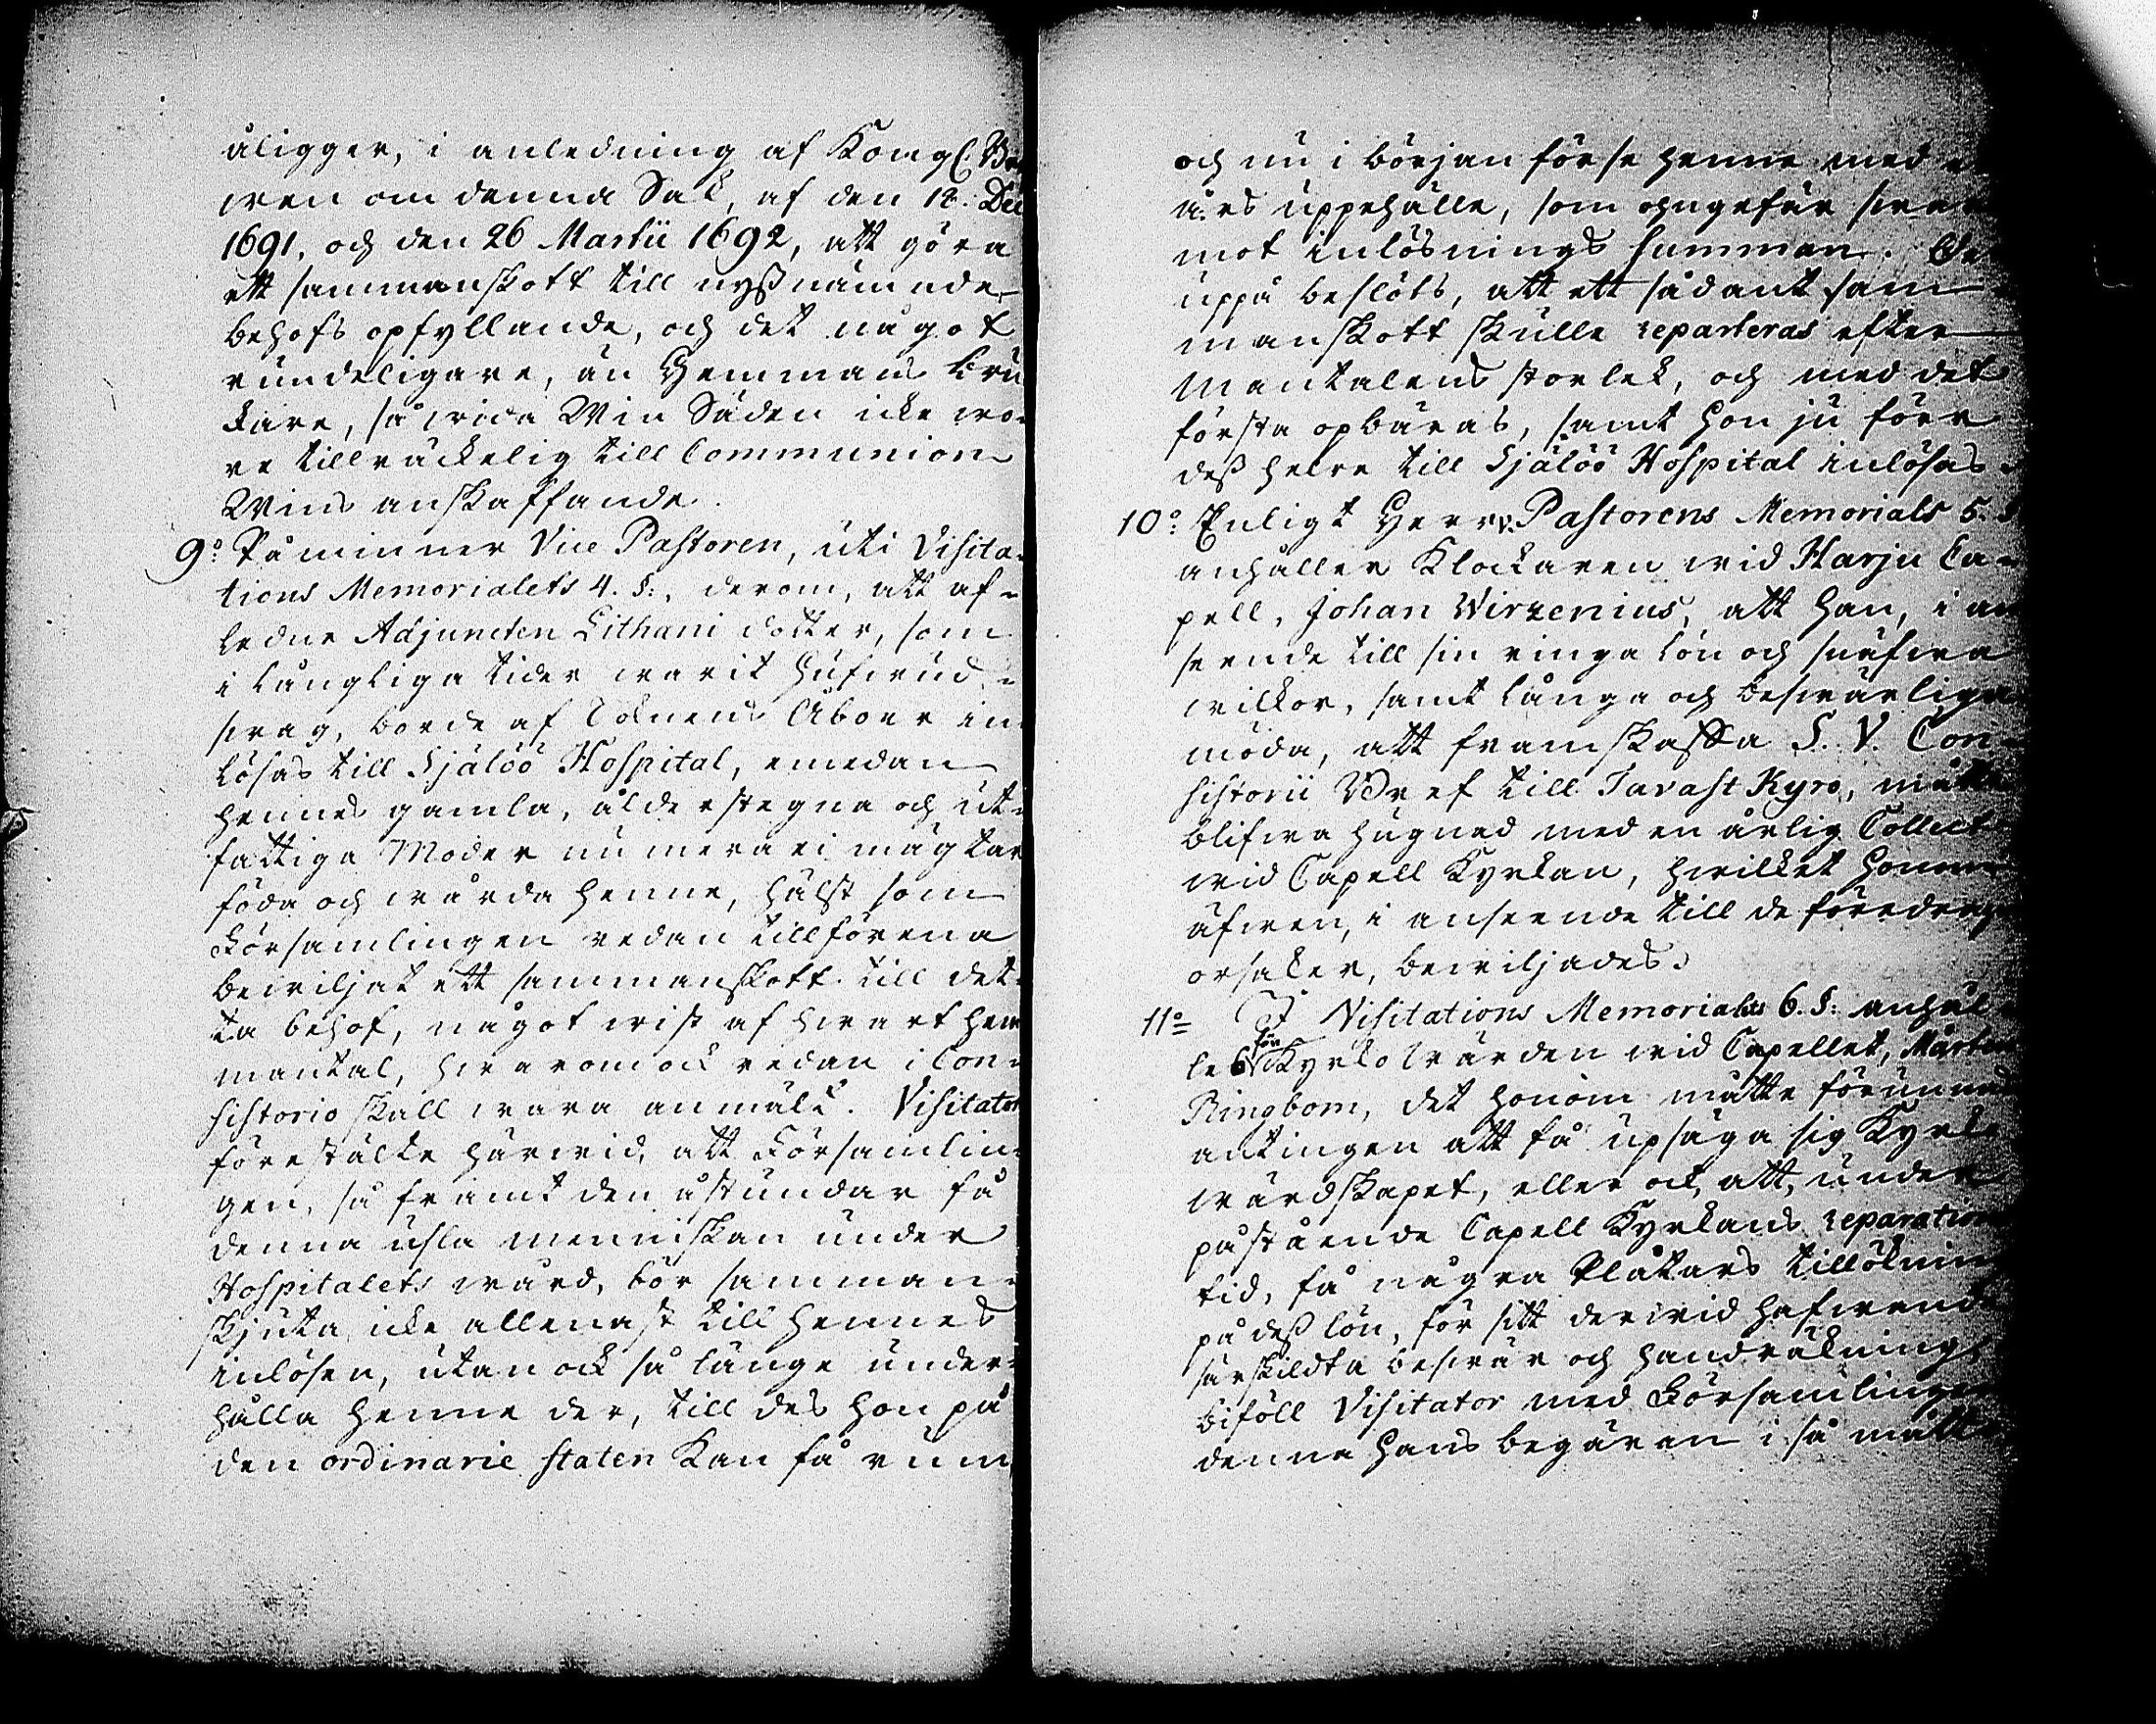 åligger, i anledning af Kongl. Bre
wen om denna Sak, af den 18. Dec
1691, och den 26 Martii 1692, att göra
ett sammanskott till nyßnämnde
behofs opfyllande, och det något
rundeligare, än Hemmans bru
kare, så wida Win Säden icke wo-
re tillräckelig till Communion
Wins anskaffande.
9:o Påminner Vice Pastoren, uti Visita-
tions Memorialets 4. §:, derom, att af-
ledne Adjuncten Lithani dotter, som
i långliga tider warit hufwud-
swag, borde af Soknens Åboer in
lösas till Själöö Hospital, emedan
hennes gamla, ålderstegna och ut-
fattiga Moder nu mera ei mägtar
föda och wårda henne, hälst som
Församlingen redan tillförena
bewiljat ett sammanskott till det-
ta behof, något wist af hwart hem
mantal, hwarom ock redan i Con-
sistorio skall wara anmält. Visitator
förestälte härwid, att Församlin-
gen, så framt den åstundar få
denna usla menniskan under
Hospitalets wård, bör samman-
skjuta icke allenast till hennes
inlösen, utan ock så länge under-
hålla henne der, till des hon på
den ordinarie staten kan få rum,
och nu i början förse henne med
års uppehälle, som ohngefär swar
mot inlösnings summan.
uppå beslöts, att ett sådant sam-
manskott skulle reparteras efter
Mantalens storlek, och med det
första opbäras, samt hon ju förr
deß helre till Själöö Hospital inlösas.
10:o Enligt Herr v. Pastorens Memorials 5. §
anhåller Klockaren wid Harju Ca-
pell, Johan Wirzenius, att han, i an
seende till sin ringa lön och snäfwa
wilkor, samt långa och beswärliga
möda, att framskaffa S. V. Con-
sistorii Bref till Tavast Kyro, måtte
blifwa hugnad med en årlig Collect
wid Capell Kyrkan, hwilket honom
äfwen, i anseende till de föredragne
orsaker, bewiljades.
11:o I Visitations Memorialets 6. §: anhål-
les för Kyrkowärden wid Capellet, Mårten
Ringbom, det honom måtte förunnas
antingen att få upsäga sig Kyrko
wärdskapet, eller ock, att, under
påstående Capell Kyrkans reparations
tid, få några Plåtars tillökning
på deß lön, för sitt derwid hafwande
särskildta beswär och handräkning,
biföll Visitator med Församlingen
denne hans begäran i så måtto